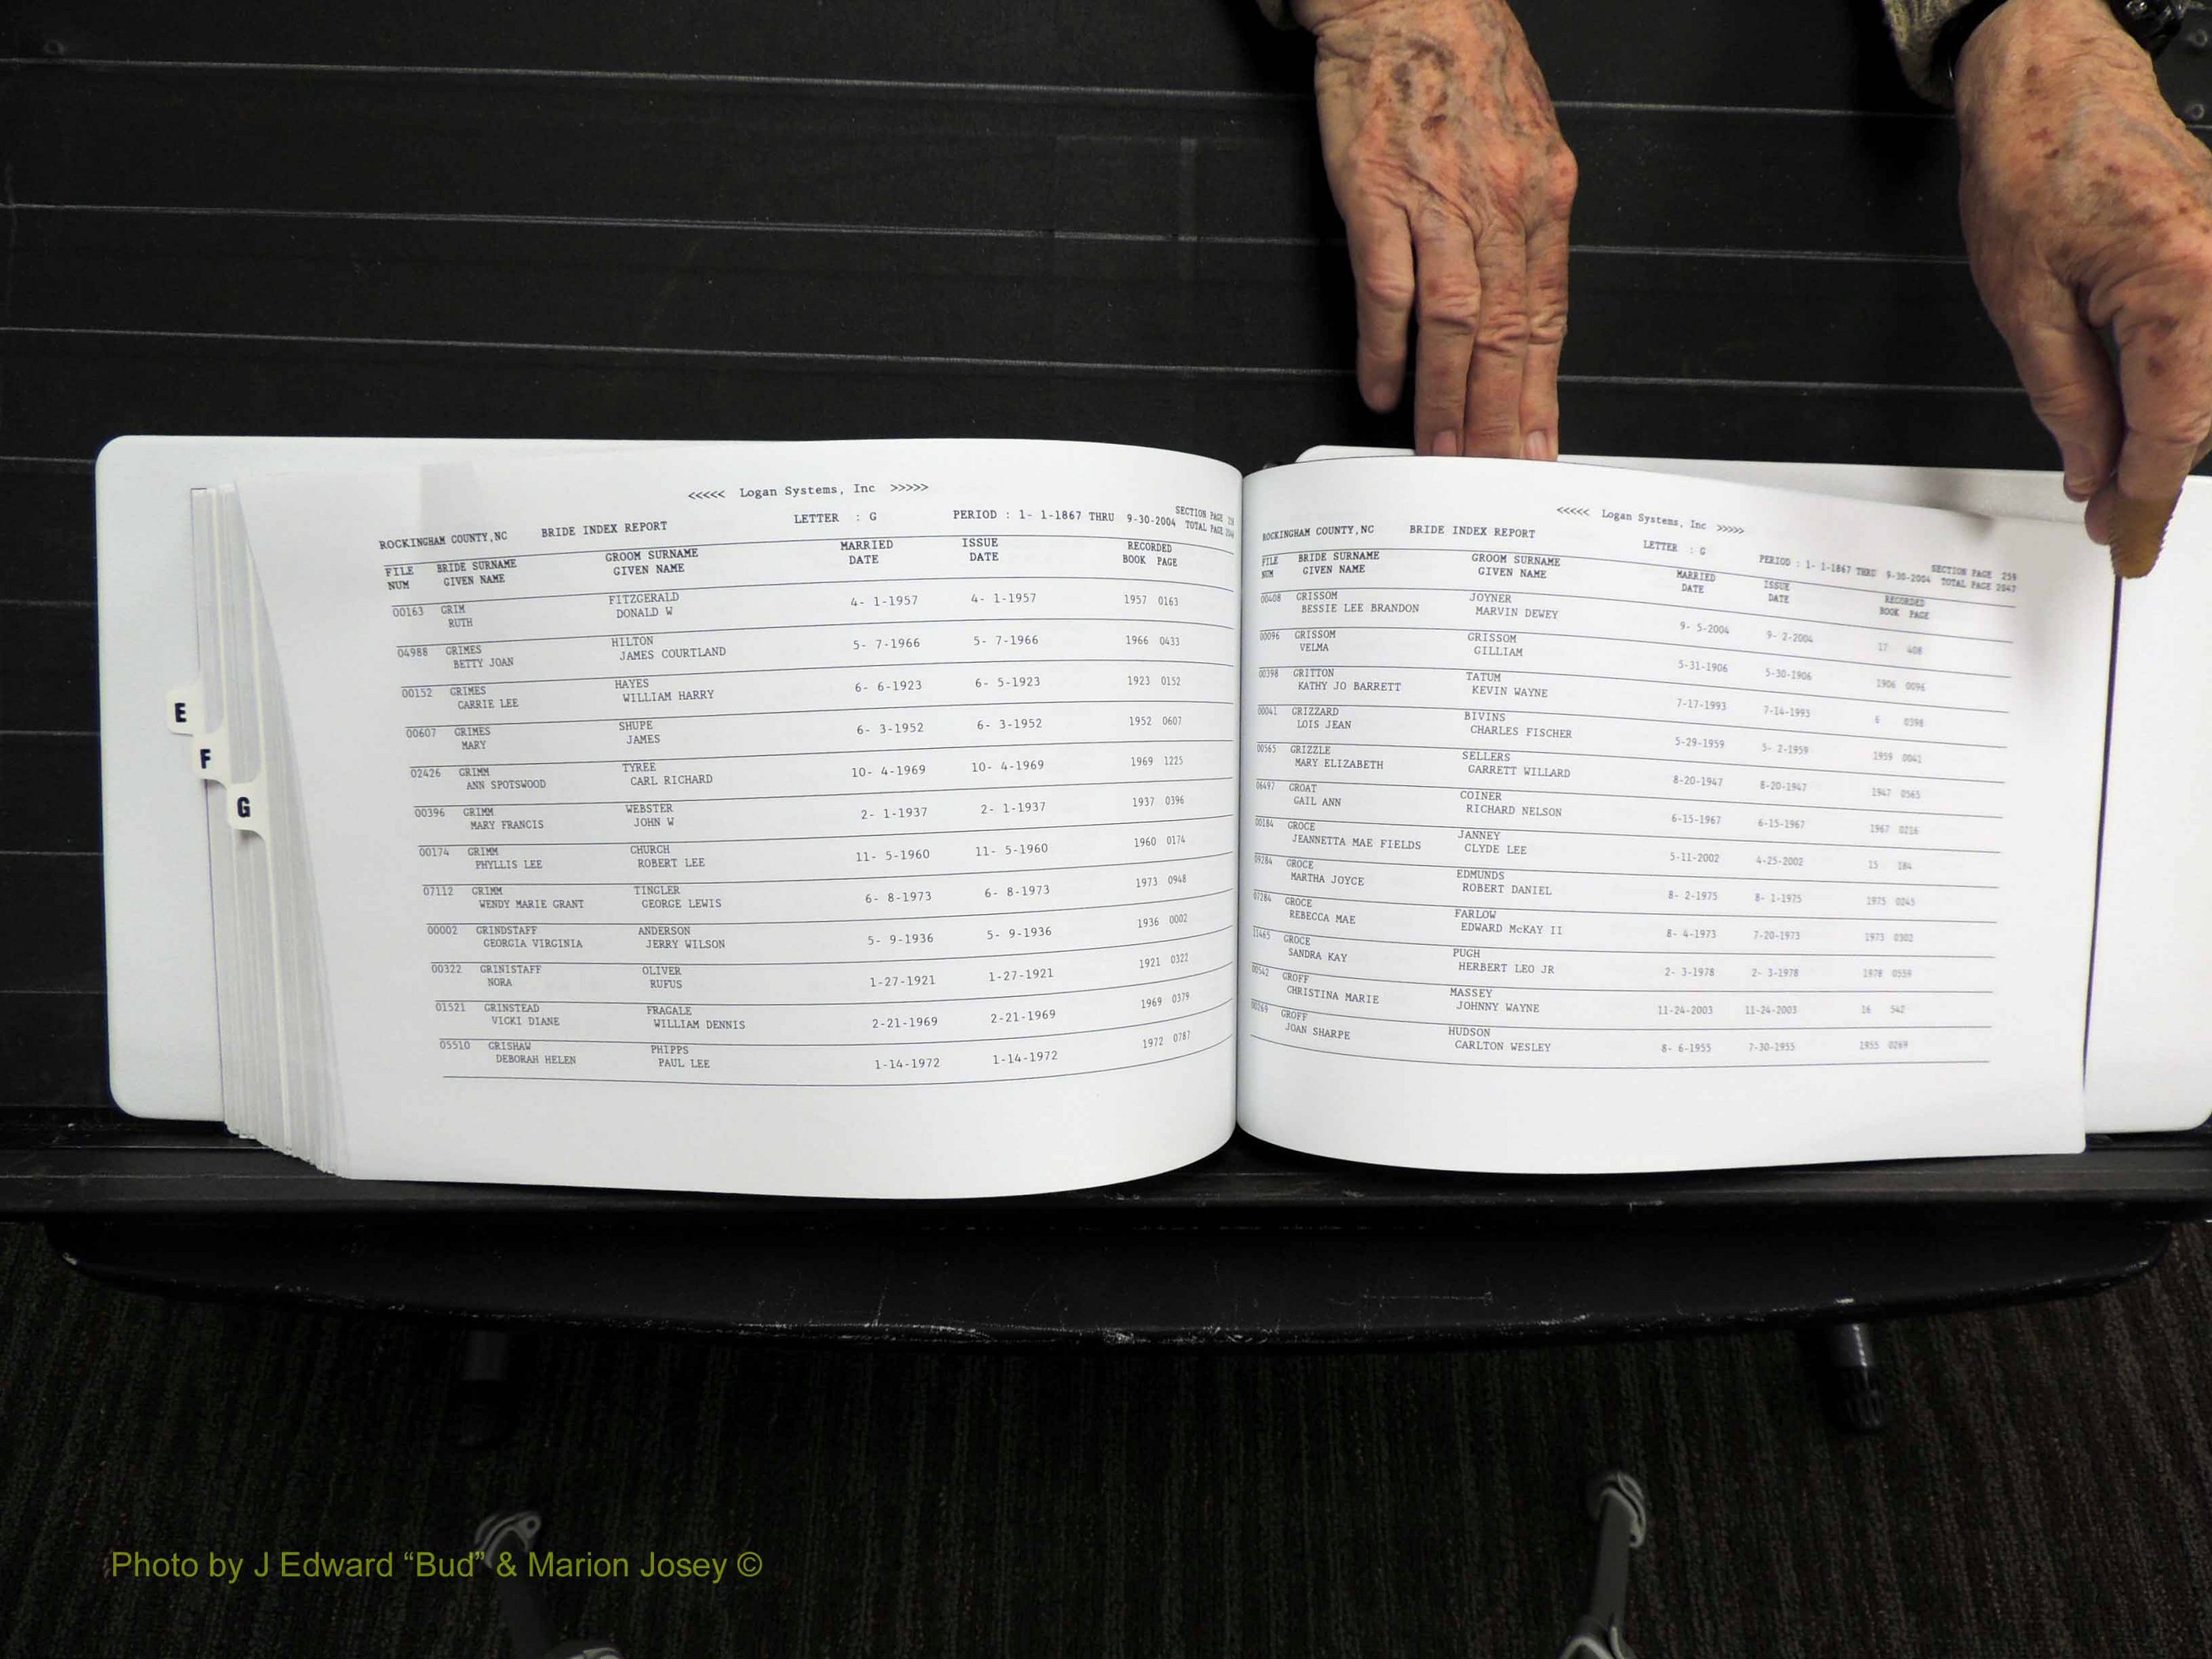 <<<<< Logan Systems, Inc >>>>>
ROCKINGHAM COUNTY,NC BRIDE INDEX REPORT LETTER : G PERIOD : 1- 1-1867 THRU 9-30-2004 SECTION PAGE
TOTAL PAGE
FILE BRIDE SURNAME GROOM SURNAME MARRIED ISSUE RECORDED
NUM GIVEN NAME GIVEN NAME DATE DATE BOOK PAGE
00163 GRIM FITZGERALD 4- 1-1957 4- 1-1957 1957 0163
RUTH DONALD W
04988 GRIMES HILTON 5- 7-1966 5- 7-1966 1966 0433
BETTY JOAN JAMES COURTLAND
00152 GRIMES HAYES 6- 6-1923 6- 5-1923 1923 0152
CARRIE LEE WILLIAM HARRY
00607 GRIMES SHUPE 6- 3-1952 6- 3-1952 1952 0607
MARY JAMES
02426 GRIMM TYREE 10- 4-1969 10- 4-1969 1969 1225
ANN SPOTSWOOD CARL RICHARD
00396 GRIMM WEBSTER 2- 1-1937 2- 1-1937 1937 0396
MARY FRANCIS JOHN W
00174 GRIMM CHURCH 11- 5-1960 11- 5-1960 1960 0174
PHYLLIS LEE ROBERT LEE
07112 GRIMM TINGLER 6- 8-1973 6- 8-1973 1973 0948
WENDY MARIE GRANT GEORGE LEWIS
00002 GRINDSTAFF ANDERSON 5- 9-1936 5- 9-1936 1936 0002
GEORGIA VIRGINIA JERRY WILSON
00322 GRINISTAFF OLIVER 1-27-1921 1-27-1921 1921 0322
NORA RUFUS
01521 GRINSTEAD FRAGALE 2-21-1969 2-21-1969 1969 0379
VICKI DIANE WILLIAM DENNIS
05510 GRISHAW PHIPPS 1-14-1972 1-14-1972 1972 0787
DEBORAH HELEN PAUL LEE
E
F
G
<<<<< Logan Systems, Inc >>>>>
ROCKINGHAM COUNTY,NC BRIDE INDEX REPORT LETTER : G PERIOD : 1- 1-1867 THRU 9-30-2004 SECTION PAGE 259
TOTAL PAGE 2047
FILE BRIDE SURNAME GROOM SURNAME MARRIED ISSUE RECORDED
NUM GIVEN NAME GIVEN NAME DATE DATE BOOK PAGE
00408 GRISSOM JOYNER 9- 5-2004 9- 2-2004 17 408
BESSIE LEE BRANDON MARVIN DEWEY
00096 GRISSOM GRISSOM 5-31-1906 5-30-1906 1906 0096
VELMA GILLIAM
00398 GRITTON TATUM 7-17-1993 7-14-1993 6 0398
KATHY JO BARRETT KEVIN WAYNE
00041 GRIZZARD BIVINS 5-29-1959 5- 2-1959 1959 0041
LOIS JEAN CHARLES FISCHER
00565 GRIZZLE SELLERS 8-20-1947 8-20-1947 1947 0565
MARY ELIZABETH GARRETT WILLARD
06497 GROAT COINER 6-15-1967 6-15-1967 1967 0216
GAIL ANN RICHARD NELSON
00184 GROCE JANNEY 5-11-2002 4-25-2002 15 184
JEANNETTA MAE FIELDS CLYDE LEE
09284 GROCE EDMUNDS 8- 2-1975 8- 1-1975 1975 0245
MARTHA JOYCE ROBERT DANIEL
07284 GROCE FARLOW 8- 4-1973 7-20-1973 1973 0302
REBECCA MAE EDWARD McKAY II
11465 GROCE PUGH 2- 3-1978 2- 3-1978 1978 0559
SANDRA KAY HERBERT LEO JR
00542 GROFF MASSEY 11-24-2003 11-24-2003 16 542
CHRISTINA MARIE JOHNNY WAYNE
00269 GROFF HUDSON 8- 6-1955 7-30-1955 1955 0269
JOAN SHARPE CARLTON WESLEY
Photo by J Edward “Bud” & Marion Josey ©